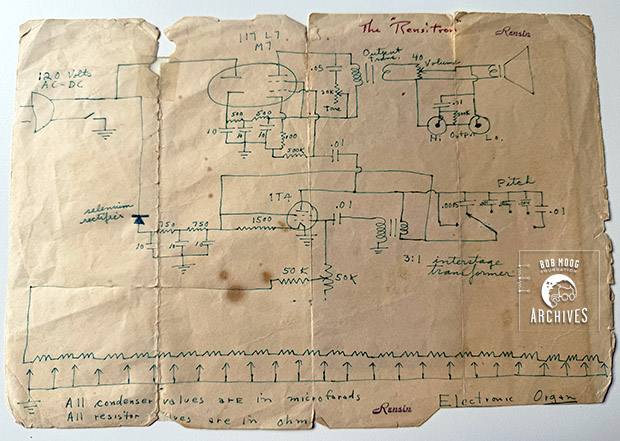 The "Rensitron
Rensin
117 L7
M7
120 Volts
AC-DC
Output
Trans.
40
Volume
.05
20K
Tone
.01
Hi
Output
Lo.
500
500
10
10
10
100
500K
.01
1T4
.01
Pitch
.0005
.01
selenium
rectifier
750
750
1500
10
10
10
3:1
interstage
transformer
50K
50K
BOB MOOG
FOUNDATION
ARCHIVES
All condenser values are in microfarads
All resistor are in ohm
Rensin
Electronic Organ